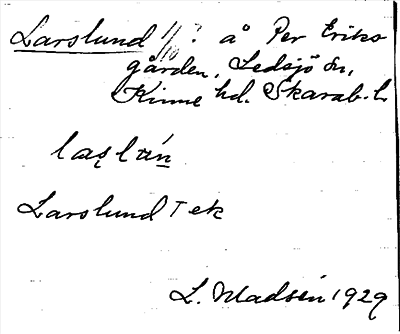 Larslund å Per Eriks
gården, Ledsjö sn,
Kinne hd. Skarab. l.
Larslund Tek
L. Madsén 1929